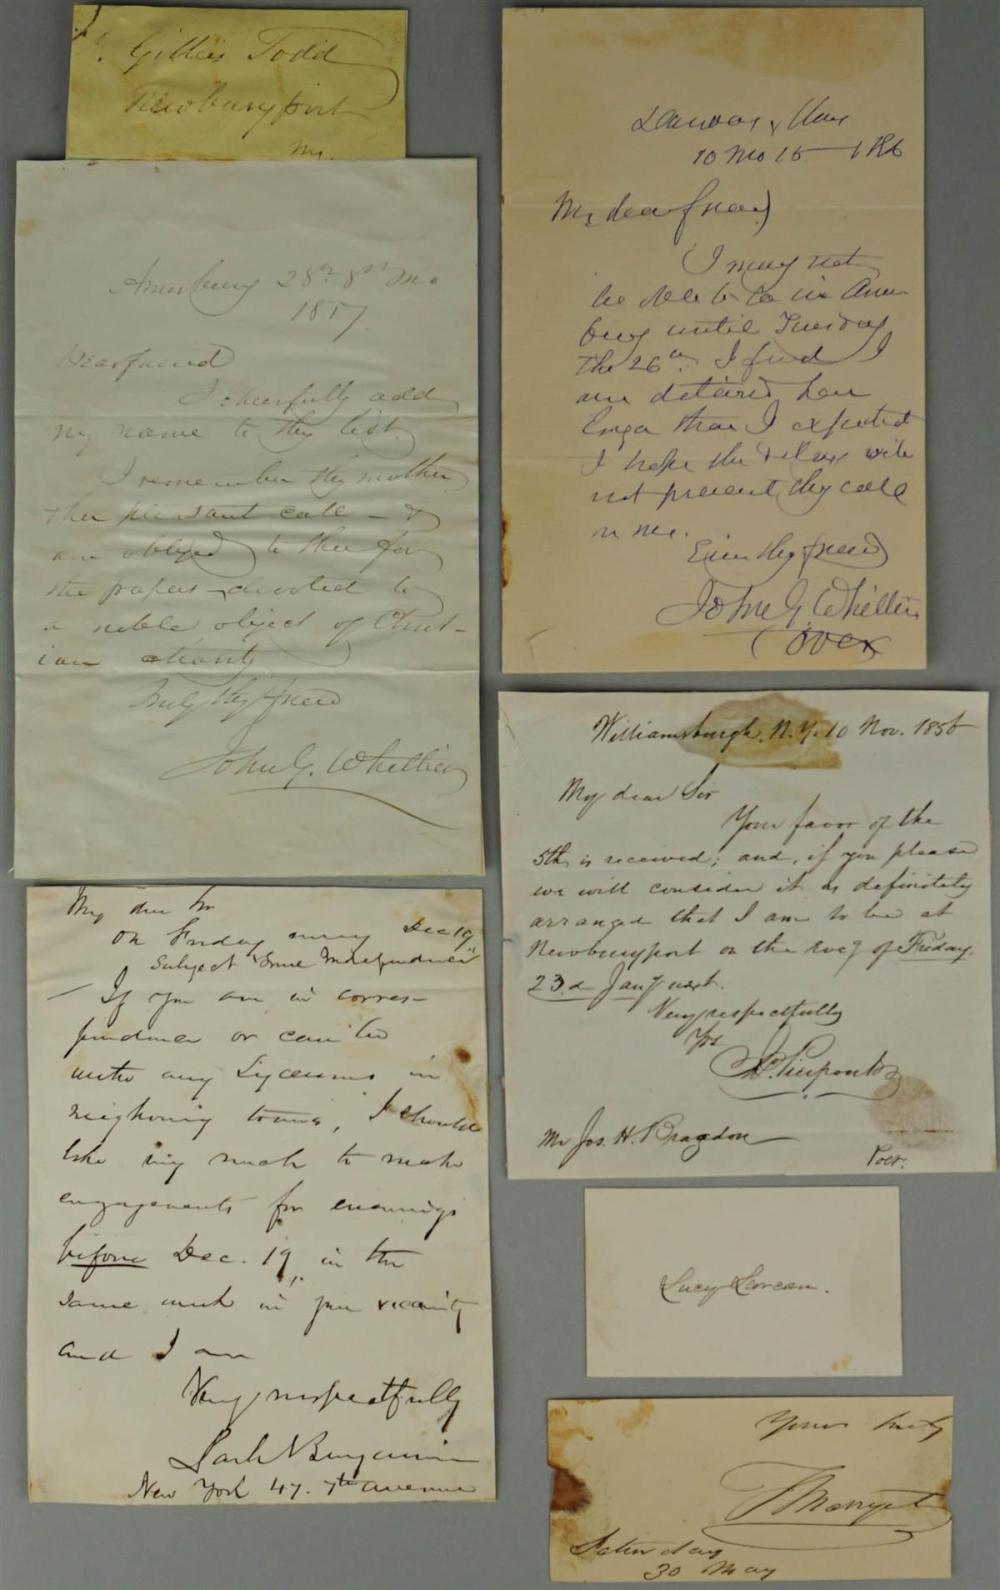 Gilles Todd
Newburyport
Ms.
Amesbury 28th 8th Mo
1857.
Dear friend
I cheerfully add
my name to thy list.
I remember thy mother
& her pleasant call — &
am obliged to thee for
the papers devoted to
a noble object of Christ-
ian charity
Truly thy friend
John G. Whittier
Danvers, Mass
10 Mo 15
My dear friend
I may not
be able to be in Ames-
bury until Tuesday
the 26th. I find I
am detained here
longer than I expected
I hope the delay will
not prevent thy call
on me.
Ever thy friend
John G. Whittier
(over
Williamsburgh, N.Y. 10 Nov. 1856
My dear Sir
Your favor of the
5th is received; and, if you please
we will consider it as definitely
arranged that I am to be at
Newburyport on the eveg of Friday.
23.d Jany next.
Very respectfully
Yrs
Jno. Pierpont
Mr Jos. H. Bragdon
Over.
My dear Sir
On Friday Dec 19,
Subject True Independence
— If you are in corres-
pondence or can be
with any Lyceums in
neighboring towns, I should
like very much to make
engagements for evenings
before Dec. 19, in the
same week in your vicinity
and I am
Very respectfully
Park Benjamin
New York 47. 7th Avenue
Lucy Larcom.
Yours truly
F Marryat
Saturday
30 May